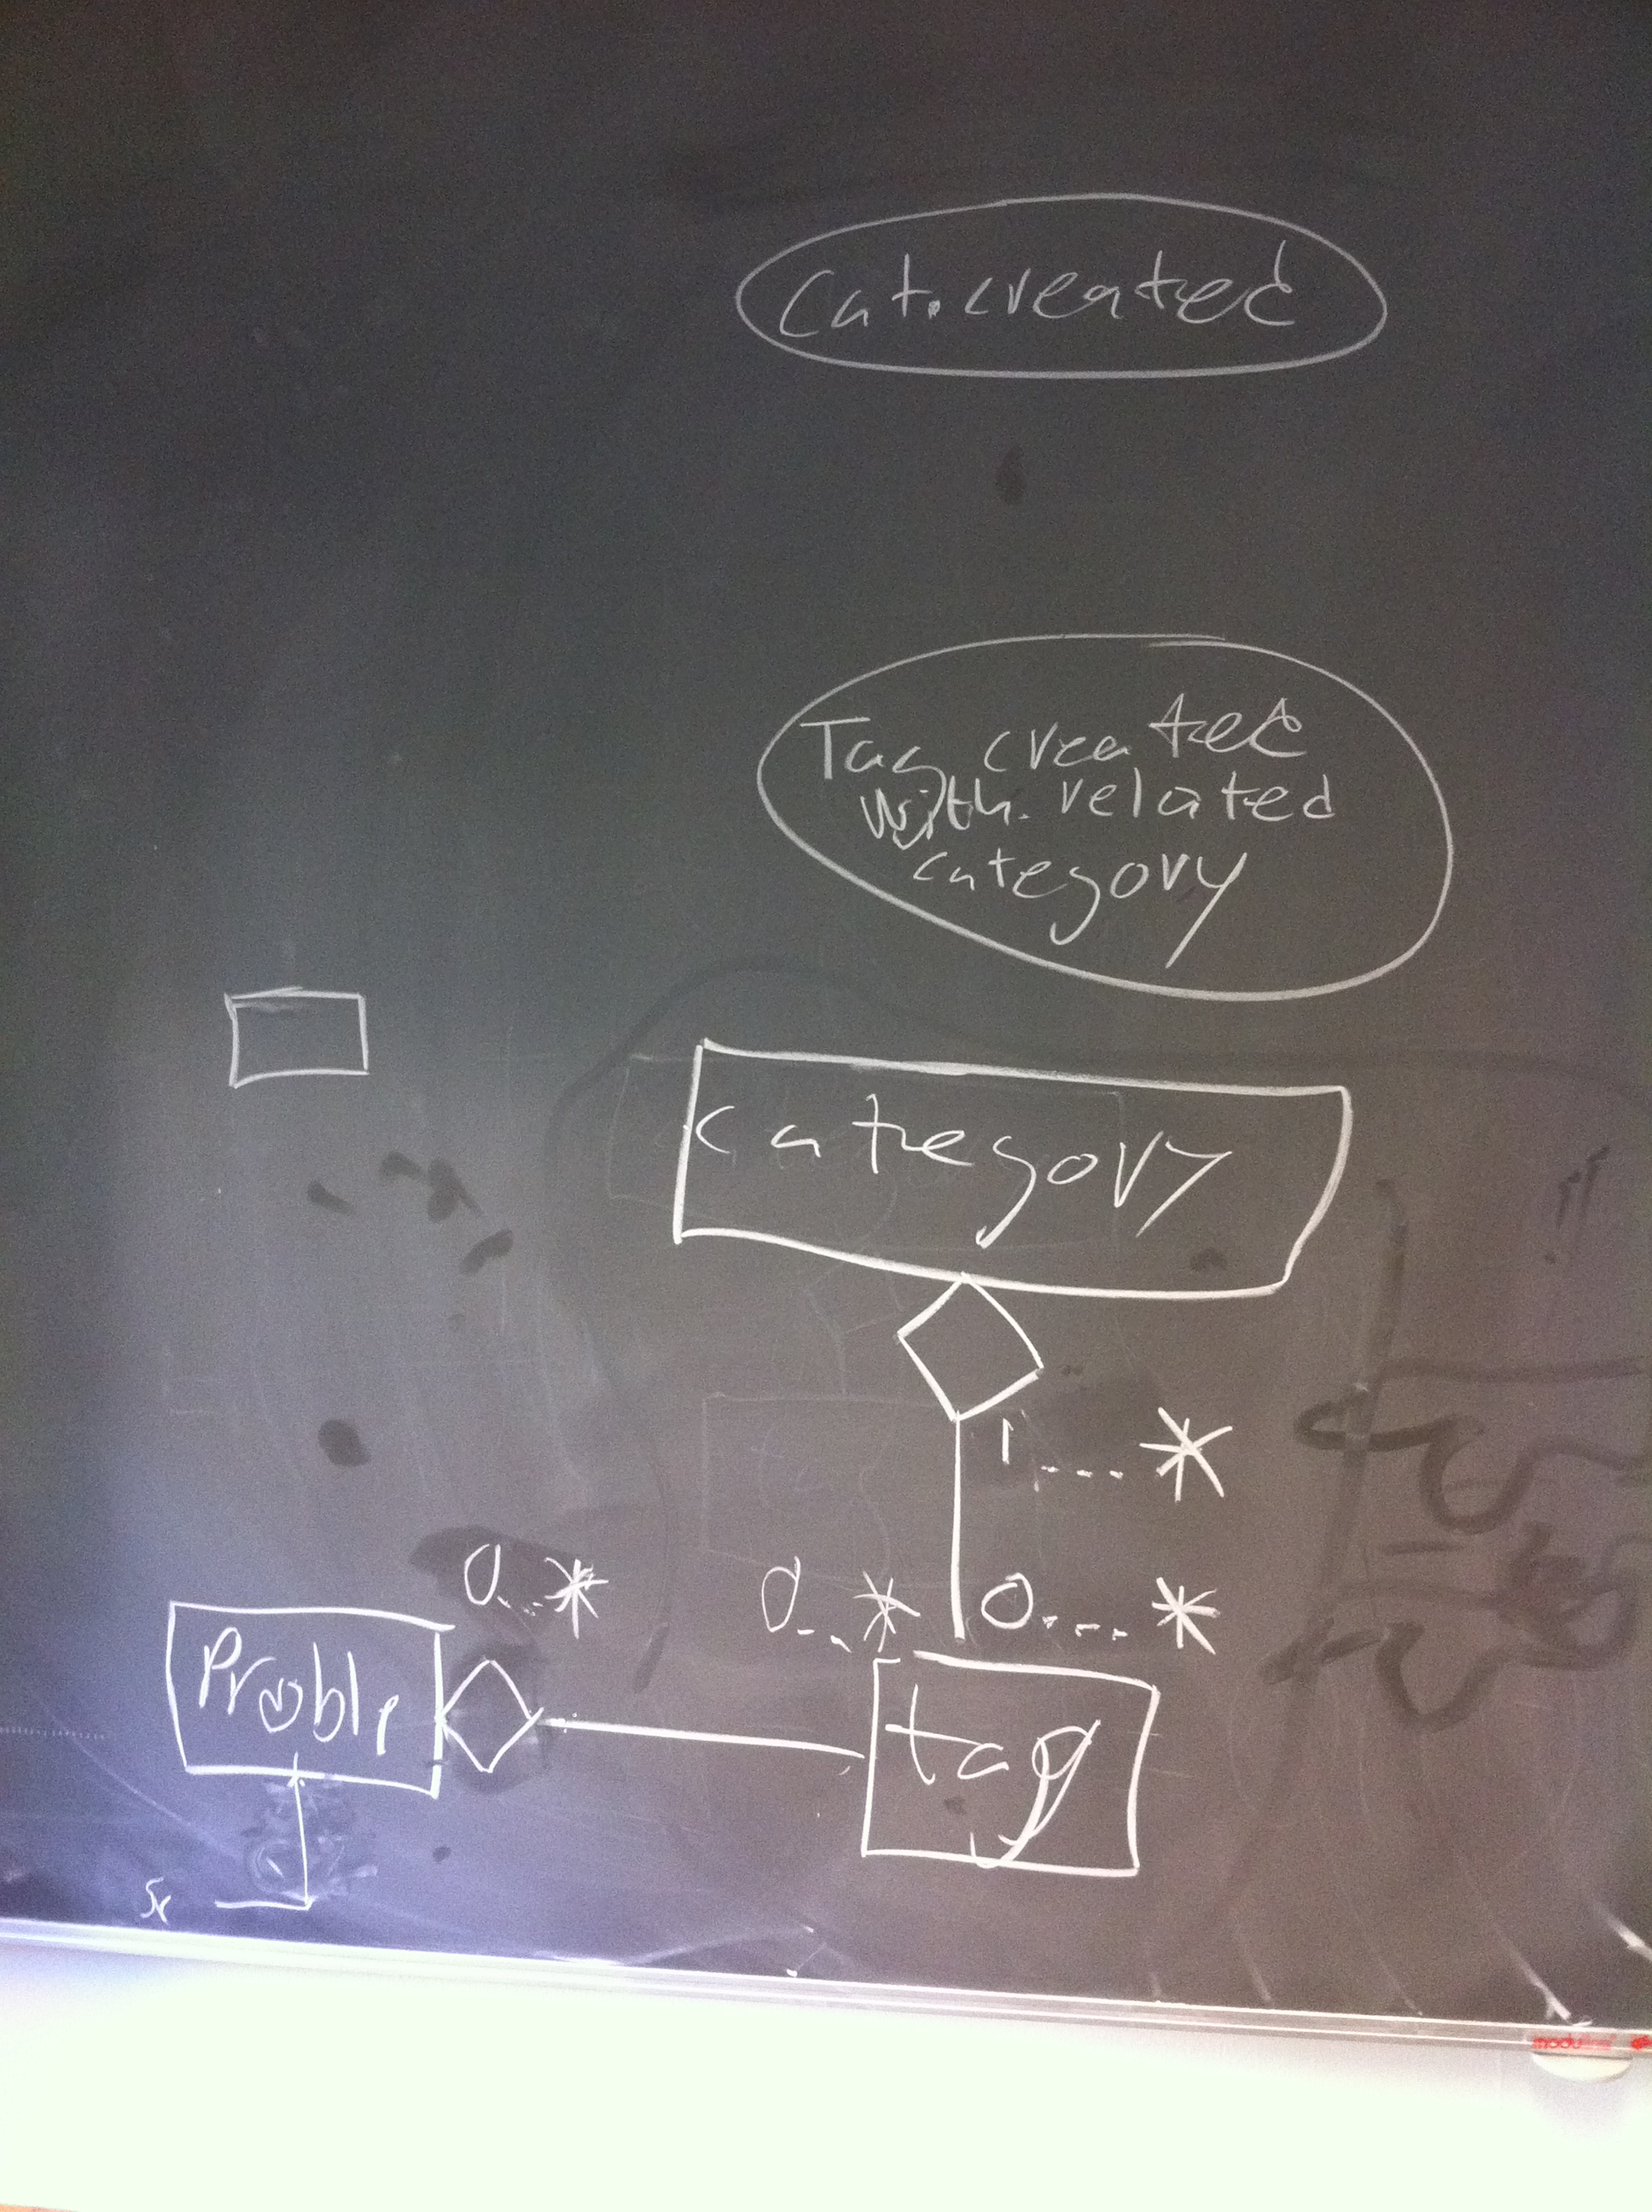 Cat. created
Tag created
with related
category
category
1....*
0...*
0...*
0....*
Proble
tag